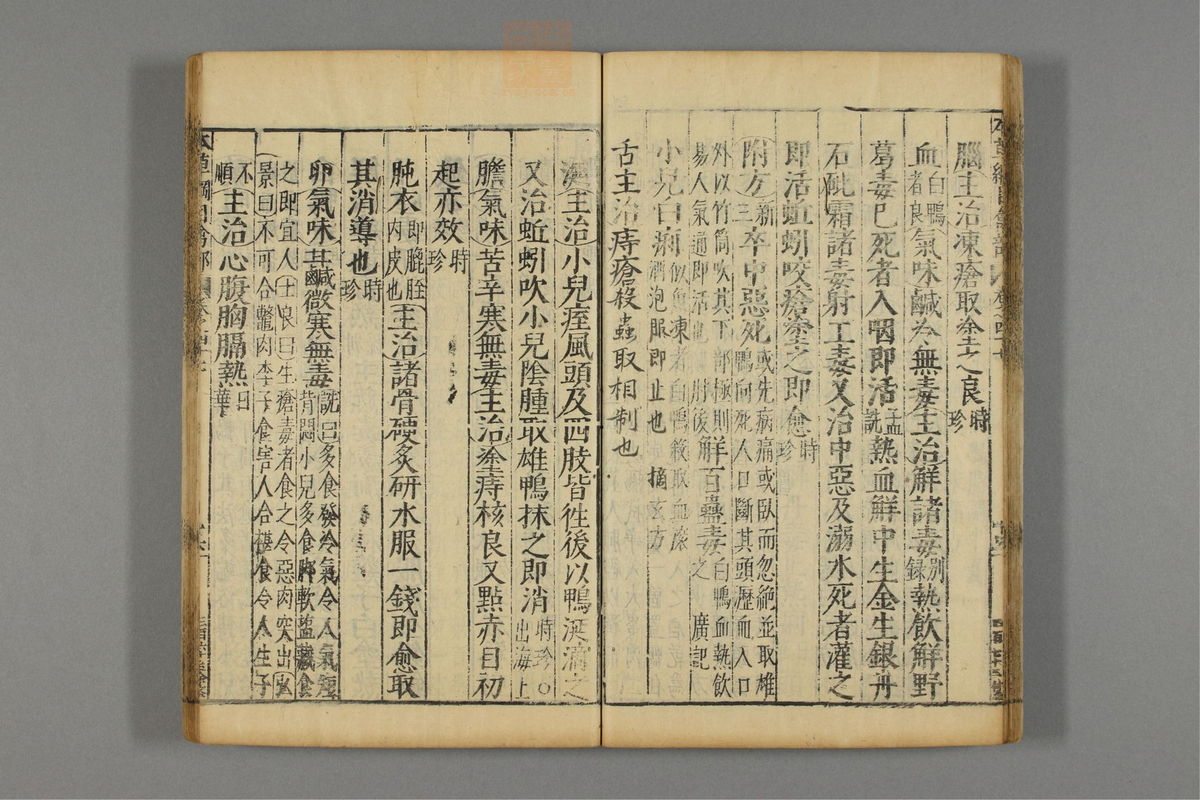 腦主治凍瘡取塗之良時珍
血白鴨者良氣味鹹冷無毒主治解諸毒別錄熱飲解野
葛毒已死者入咽即活孟詵熱血解中生金生銀丹
石砒霜諸毒射工毒又治中惡及溺水死者灌之
即活蚯蚓咬瘡塗之即愈時珍
附方新三卒中惡死或先病痛或臥而忽絕並取雄鴨向死人口斷其頭瀝血入口
外以竹筒吹其下部極則易人氣通即活也肘後解百蠱毒白鴨血熱飲之廣記
小兒白痢似魚凍者白鴨殺取血滾酒泡服即止也摘玄方
舌主治痔瘡殺蟲取相制也
涎主治小兒痓風頭及四肢皆往後以鴨涎滴之
又治蚯蚓吹小兒陰腫取雄鴨抹之即消時珍○出海上
膽氣味苦辛寒無毒主治塗痔核良又點赤目初
起亦效時珍
肫衣即膍胵內皮也主治諸骨硬炙研水服一錢即愈取
其消導也時珍
卵氣味甘鹹微寒無毒詵曰多食發冷氣令人氣短背悶小兒多食腳軟鹽藏食
之即宜人士良曰生瘡毒者食之令惡肉突出弘
景曰不可合鱉肉李子食害人合椹食令人生子
不順主治心腹胸膈熱日華